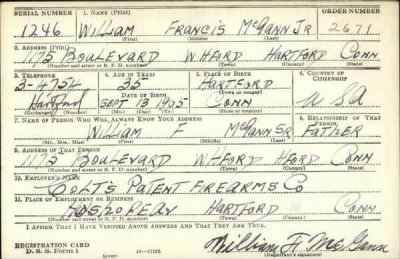 SERIAL NUMBER 1. NAME (Print) ORDER NUMBER
1246 WILLIAM FRANCIS McGANN JR 2671
(First) (Middle) (Last)
2. ADDRESS (Print)
1175 BOULEVARD W. HFORD HARTFORD CONN
(Number and street or R. F. D. number) (Town) (County) (State)
3. TELEPHONE 4. AGE IN YEARS 5. PLACE OF BIRTH 6. COUNTRY OF CITIZENSHIP
5-4754 35 HARTFORD
DATE OF BIRTH (Town or county)
Hartford SEPT 13 1905 CONN U S A
(Exchange) (Number) (Mo.) (Day) (Yr.) (State or country)
7. NAME OF PERSON WHO WILL ALWAYS KNOW YOUR ADDRESS 8. RELATIONSHIP OF THAT PERSON
WILLIAM F McGANN SR FATHER
(Mr., Mrs., Miss) (First) (Middle) (Last)
9. ADDRESS OF THAT PERSON
1175 BOULEVARD W HFORD HFORD CONN
(Number and street or R. F. D. number) (Town) (County) (State)
10. EMPLOYER'S NAME
COLTS PATENT FIREARMS CO
11. PLACE OF EMPLOYMENT OR BUSINESS
HARTFORD CONN
(Number and street or R. F. D. number) (Town) (County) (State)
I AFFIRM THAT I HAVE VERIFIED ABOVE ANSWERS AND THAT THEY ARE TRUE.
REGISTRATION CARD
D. S. S. Form 1 (over) William F. McGann
(Registrant's signature)